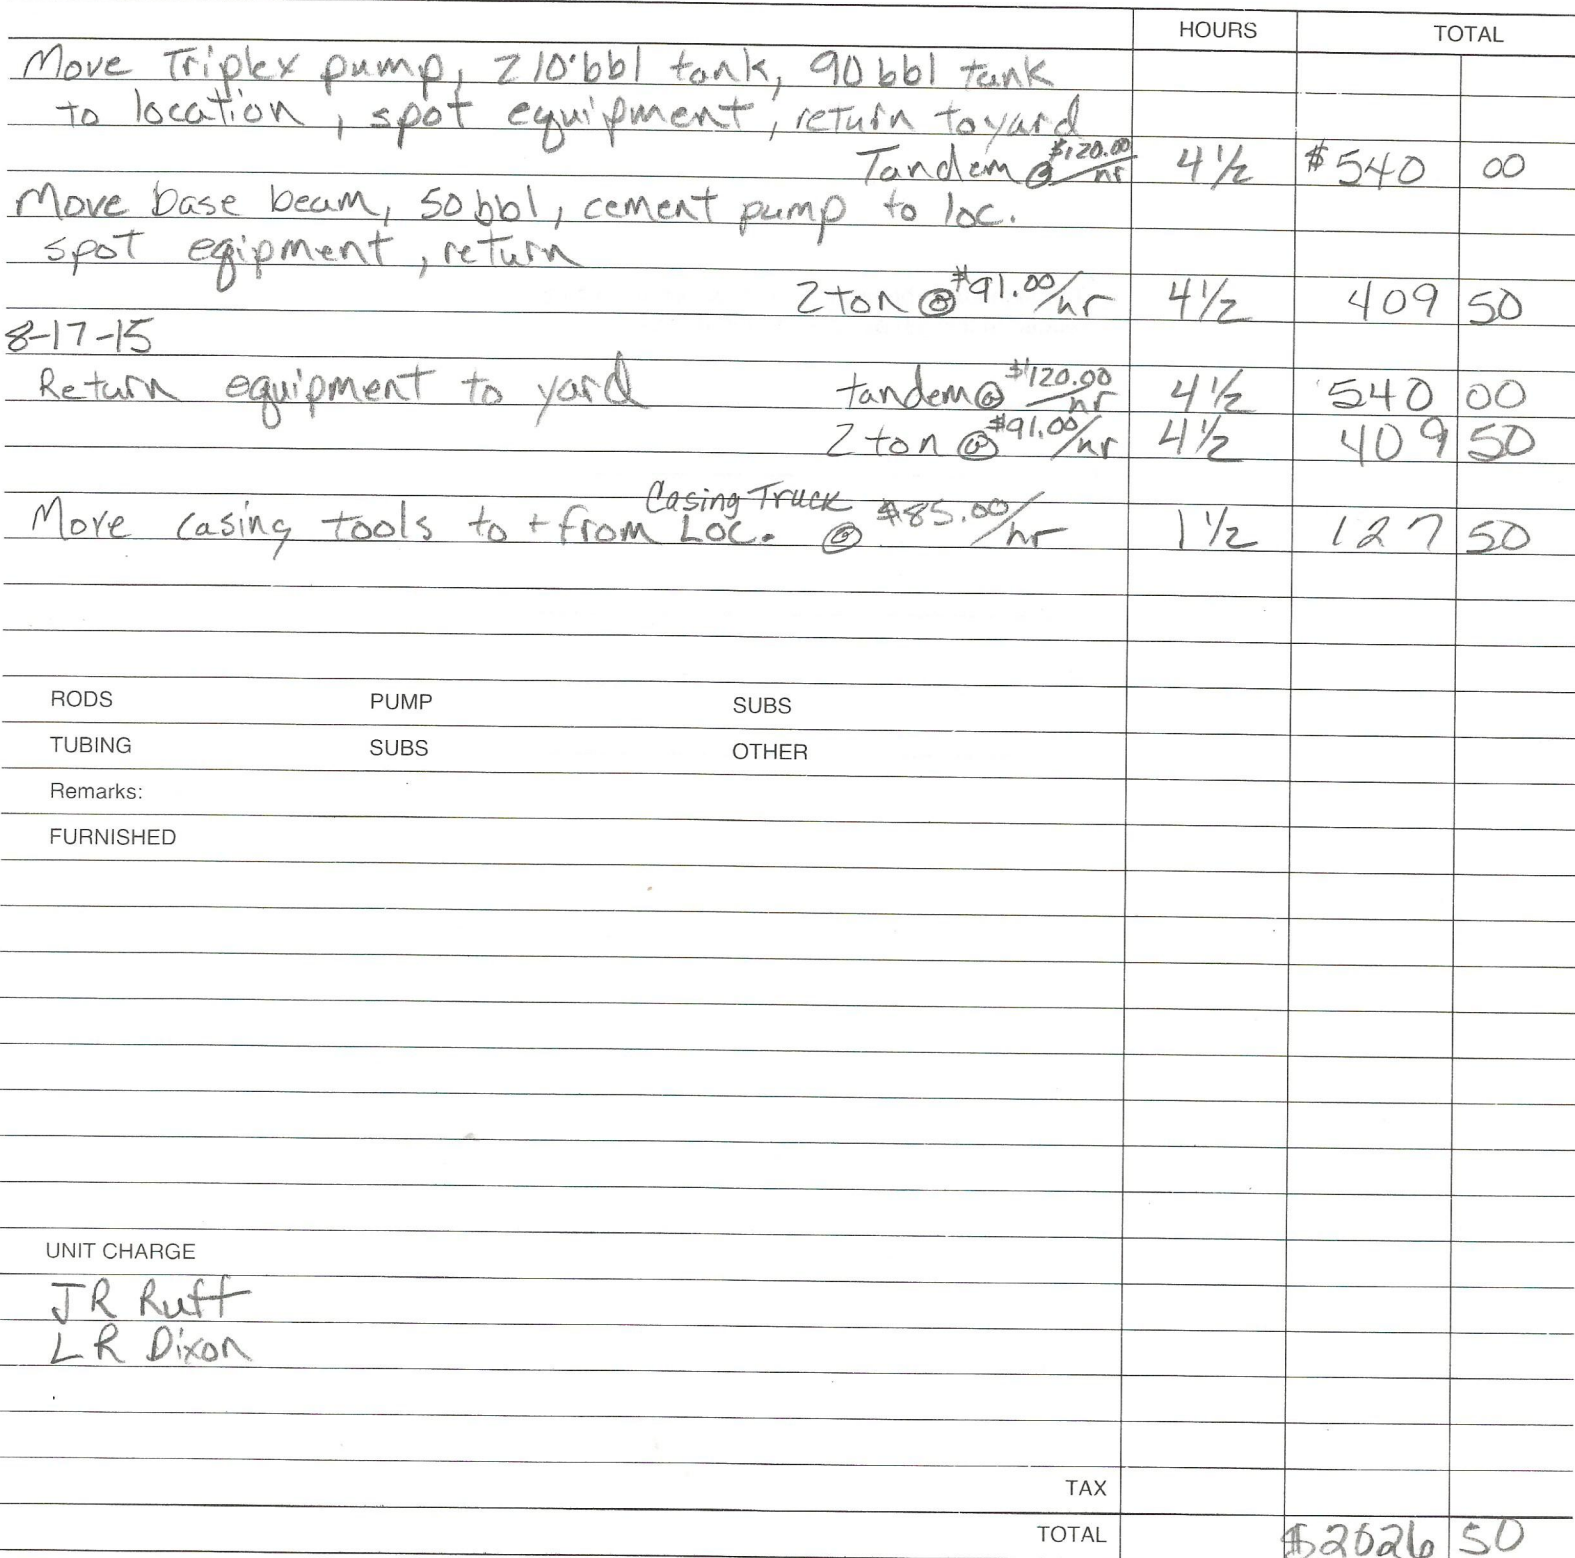 HOURS TOTAL
Move Triplex pump, 210 bbl tank, 90 bbl tank
to location, spot equipment, return to yard
Tandem @ $120.00/hr 4 1/2 $540 00
Move base beam, 50 bbl, cement pump to loc.
spot eqipment, return
2 ton @ $91.00/hr 4 1/2 409 50
8-17-15
Return equipment to yard tandem @ $120.00/hr 4 1/2 540 00
2 ton @ $91.00/hr 4 1/2 409 50
Casing Truck
Move casing tools to + from Loc. @ $85.00/hr 1 1/2 127 50
RODS PUMP SUBS
TUBING SUBS OTHER
Remarks:
FURNISHED
UNIT CHARGE
JR Ruff
LR Dixon
TAX
TOTAL $2026 50